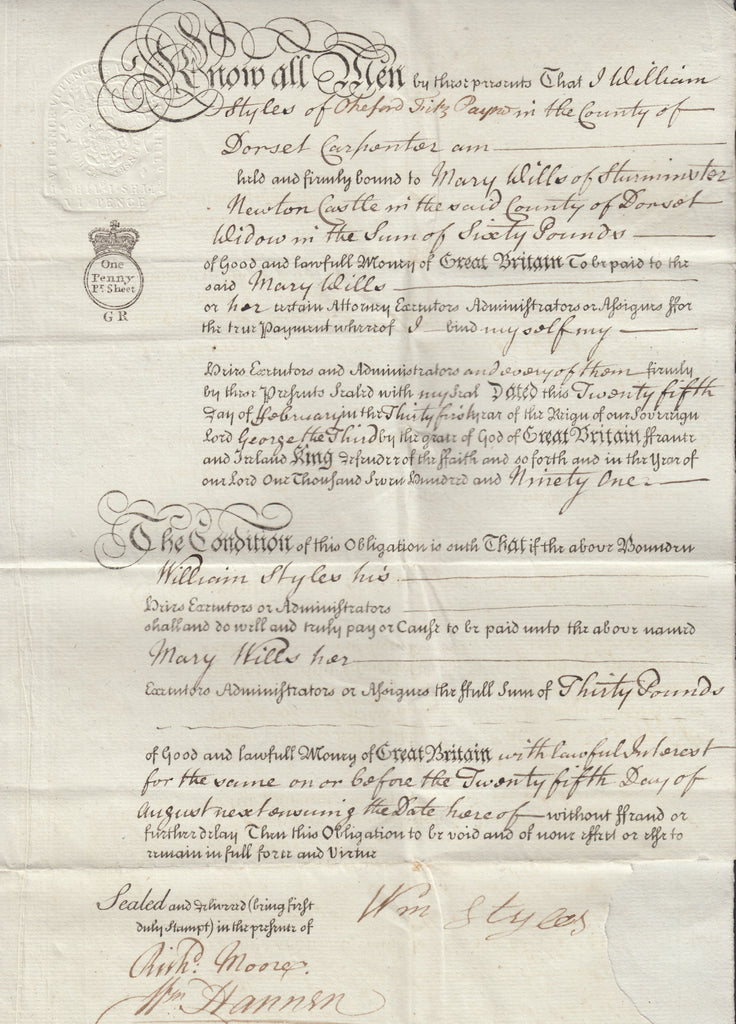 Know all Men by these presents That I William
Styles of Okeford Fitz Payne in the County of
Dorset Carpenter am
held and firmly bound to Mary Wills of Sturminster
Newton Castle in the said County of Dorset
Widow in the Sum of Sixty Pounds
of Good and lawfull Money of Great Britain To be paid to the
said Mary Wills
or her certain Attorney Executors Administrators or Assignes ffor
the true Payment whereof I bind myself my
Heirs Executors and Administrators and every of them firmly
by these Presents Sealed with my Seal Dated this Twenty fifth
Day of ffebruary in the Thirty first year of the Reign of our Sovereign
Lord George the Third by the grace of God of Great Britain ffrance
and Ireland King defender of the ffaith and so forth and in the Year of
our Lord One Thousand Seven Hundred and Ninety One
The Condition of this Obligation is such That if the above Bounden
William Styles his
Heirs Executors or Administrators
shall and do well and truly pay or Cause to be paid unto the above named
Mary Wills her
Executors Administrators or Assignes the ffull Sum of Thirty Pounds
of Good and lawfull Money of Great Britain with lawful Interest
for the same on or before the Twenty fifth Day of
August next ensuing the Date hereof without ffraud or
further delay Then this Obligation to be void and of none effect or else to
remain in full force and Virtue
Sealed and delivered (being first
duly Stampt) in the presence of
Wm Styles
Richd. Moore.
Wm Hannen
One
Penny
Pr Sheet
GR